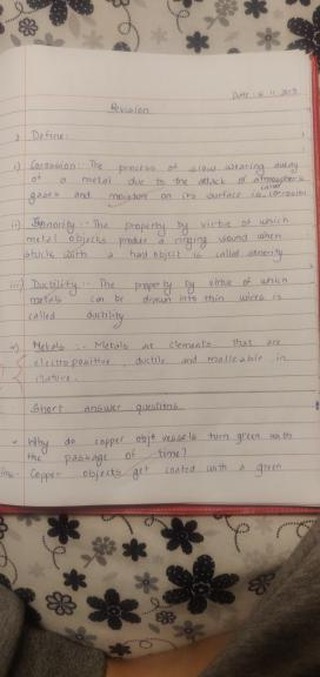 Revision
Define:
i) Corrosion: The process of slow wearing away
of a metal due to the attack of atmospheric
gases and moisture on its surface is called corrosion
ii) Sonority:- The property by virtue of which
metal objects produce a ringing sound when
struck with a hard object is called sonority
iii) Ductility:- The property by virtue of which
metals can be drawn into thin wires is
called ductility
Metals:- Metals are elements that are
electropositive, ductile and malleable in
nature.
Short answer questions
Why do copper vessels turn green with
the passage of time?
Ans- Copper objects get coated with a green